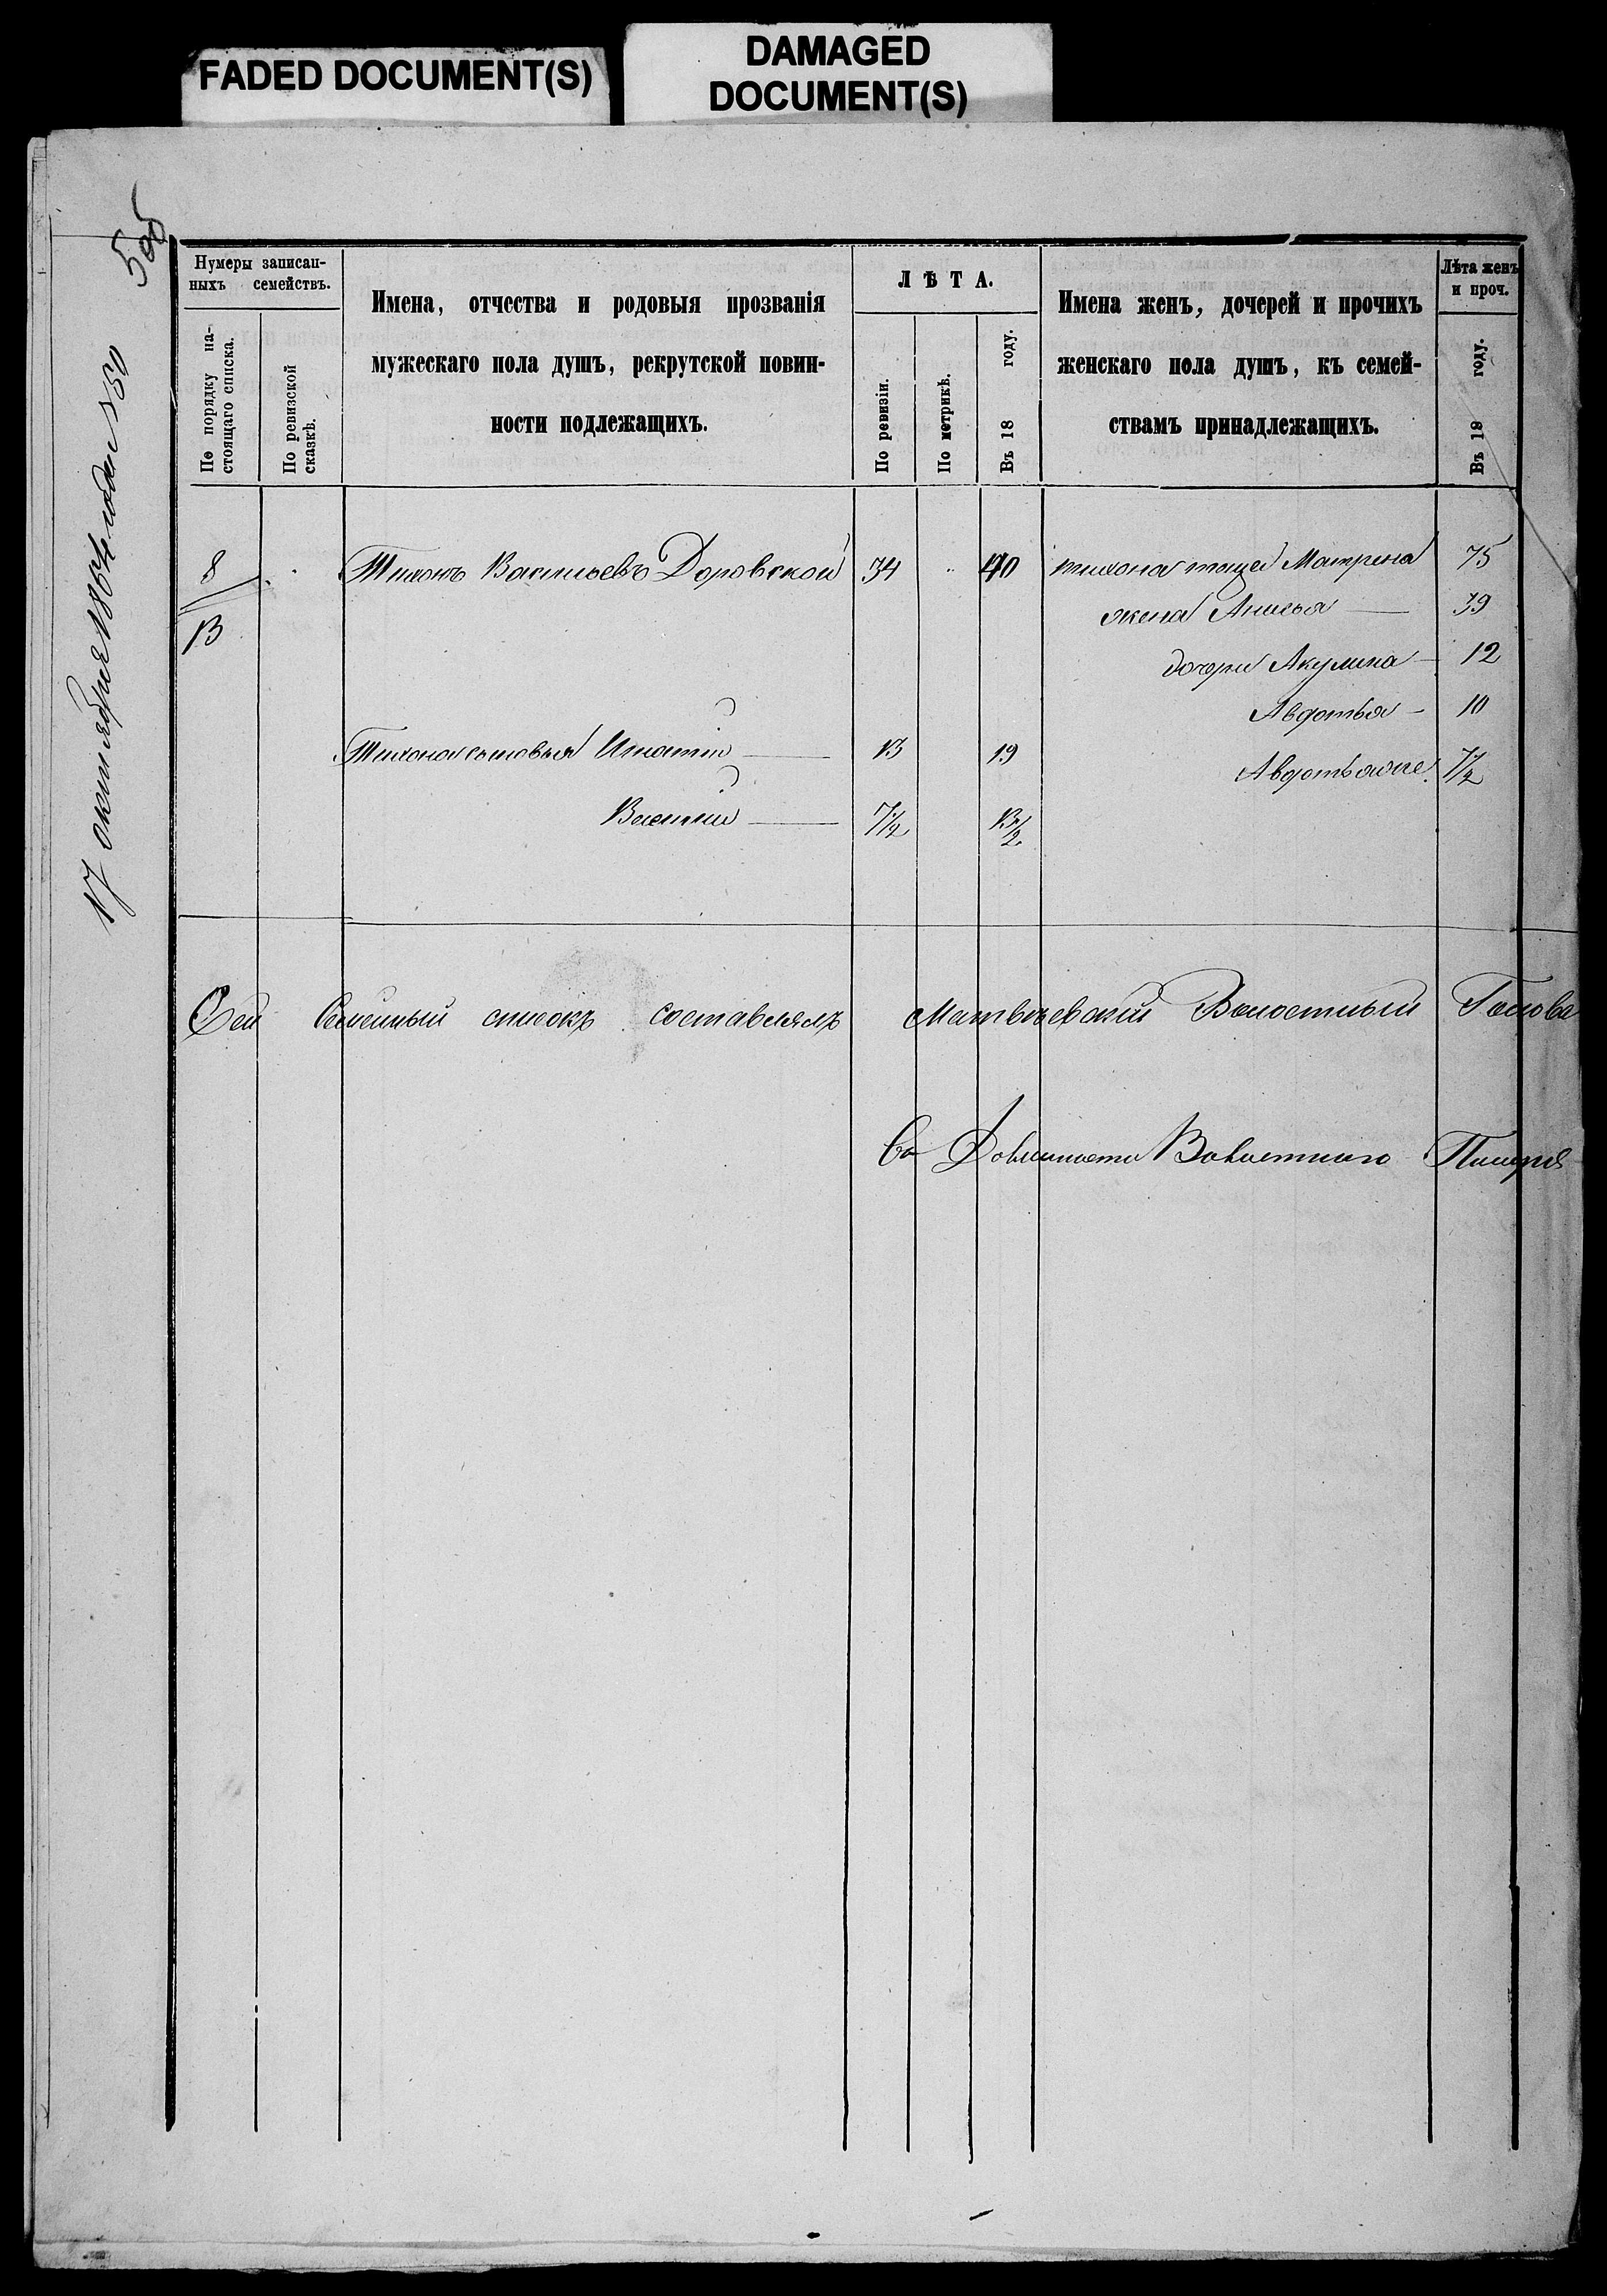 FADED DOCUMENT(S)
DAMAGED
DOCUMENT(S)
505
17 октября 1864 года №550
Нумеры записан-
ныхъ семействъ.
По порядку на-
стоящаго списка.
По ревизской
сказкѣ.
Имена, отчества и родовыя прозванія
мужескаго пола душъ, рекрутской повин-
ности подлежащихъ.
ЛѢТА.
По ревизіи.
По метрикѣ.
Въ 18 году.
Имена женъ, дочерей и прочихъ
женскаго пола душъ, къ семей-
ствамъ принадлежащихъ.
Лѣта женъ
и проч.
Въ 18 году.
8 Тихонъ Васильевъ Доровской 34 40 тихона теща Матрена 75
13 жена Анисья 39
дочери Акулина 12
Авдотья 10
Тихона сыновья Игнатій 13 19 Авдотья 7/2
Василій 7/2 13/2
Сей Семейный списокъ составлялъ Матвѣевскій Волостный Голова
Волостнаго Писаря